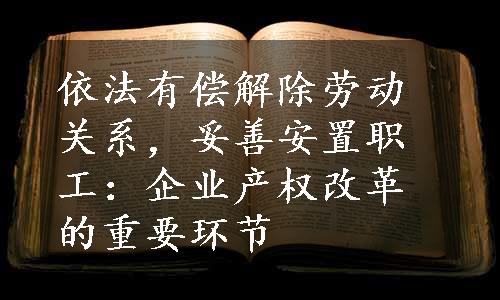 依法有偿解除劳动
关系，妥善安置职
工：企业产权改革
的重要环节